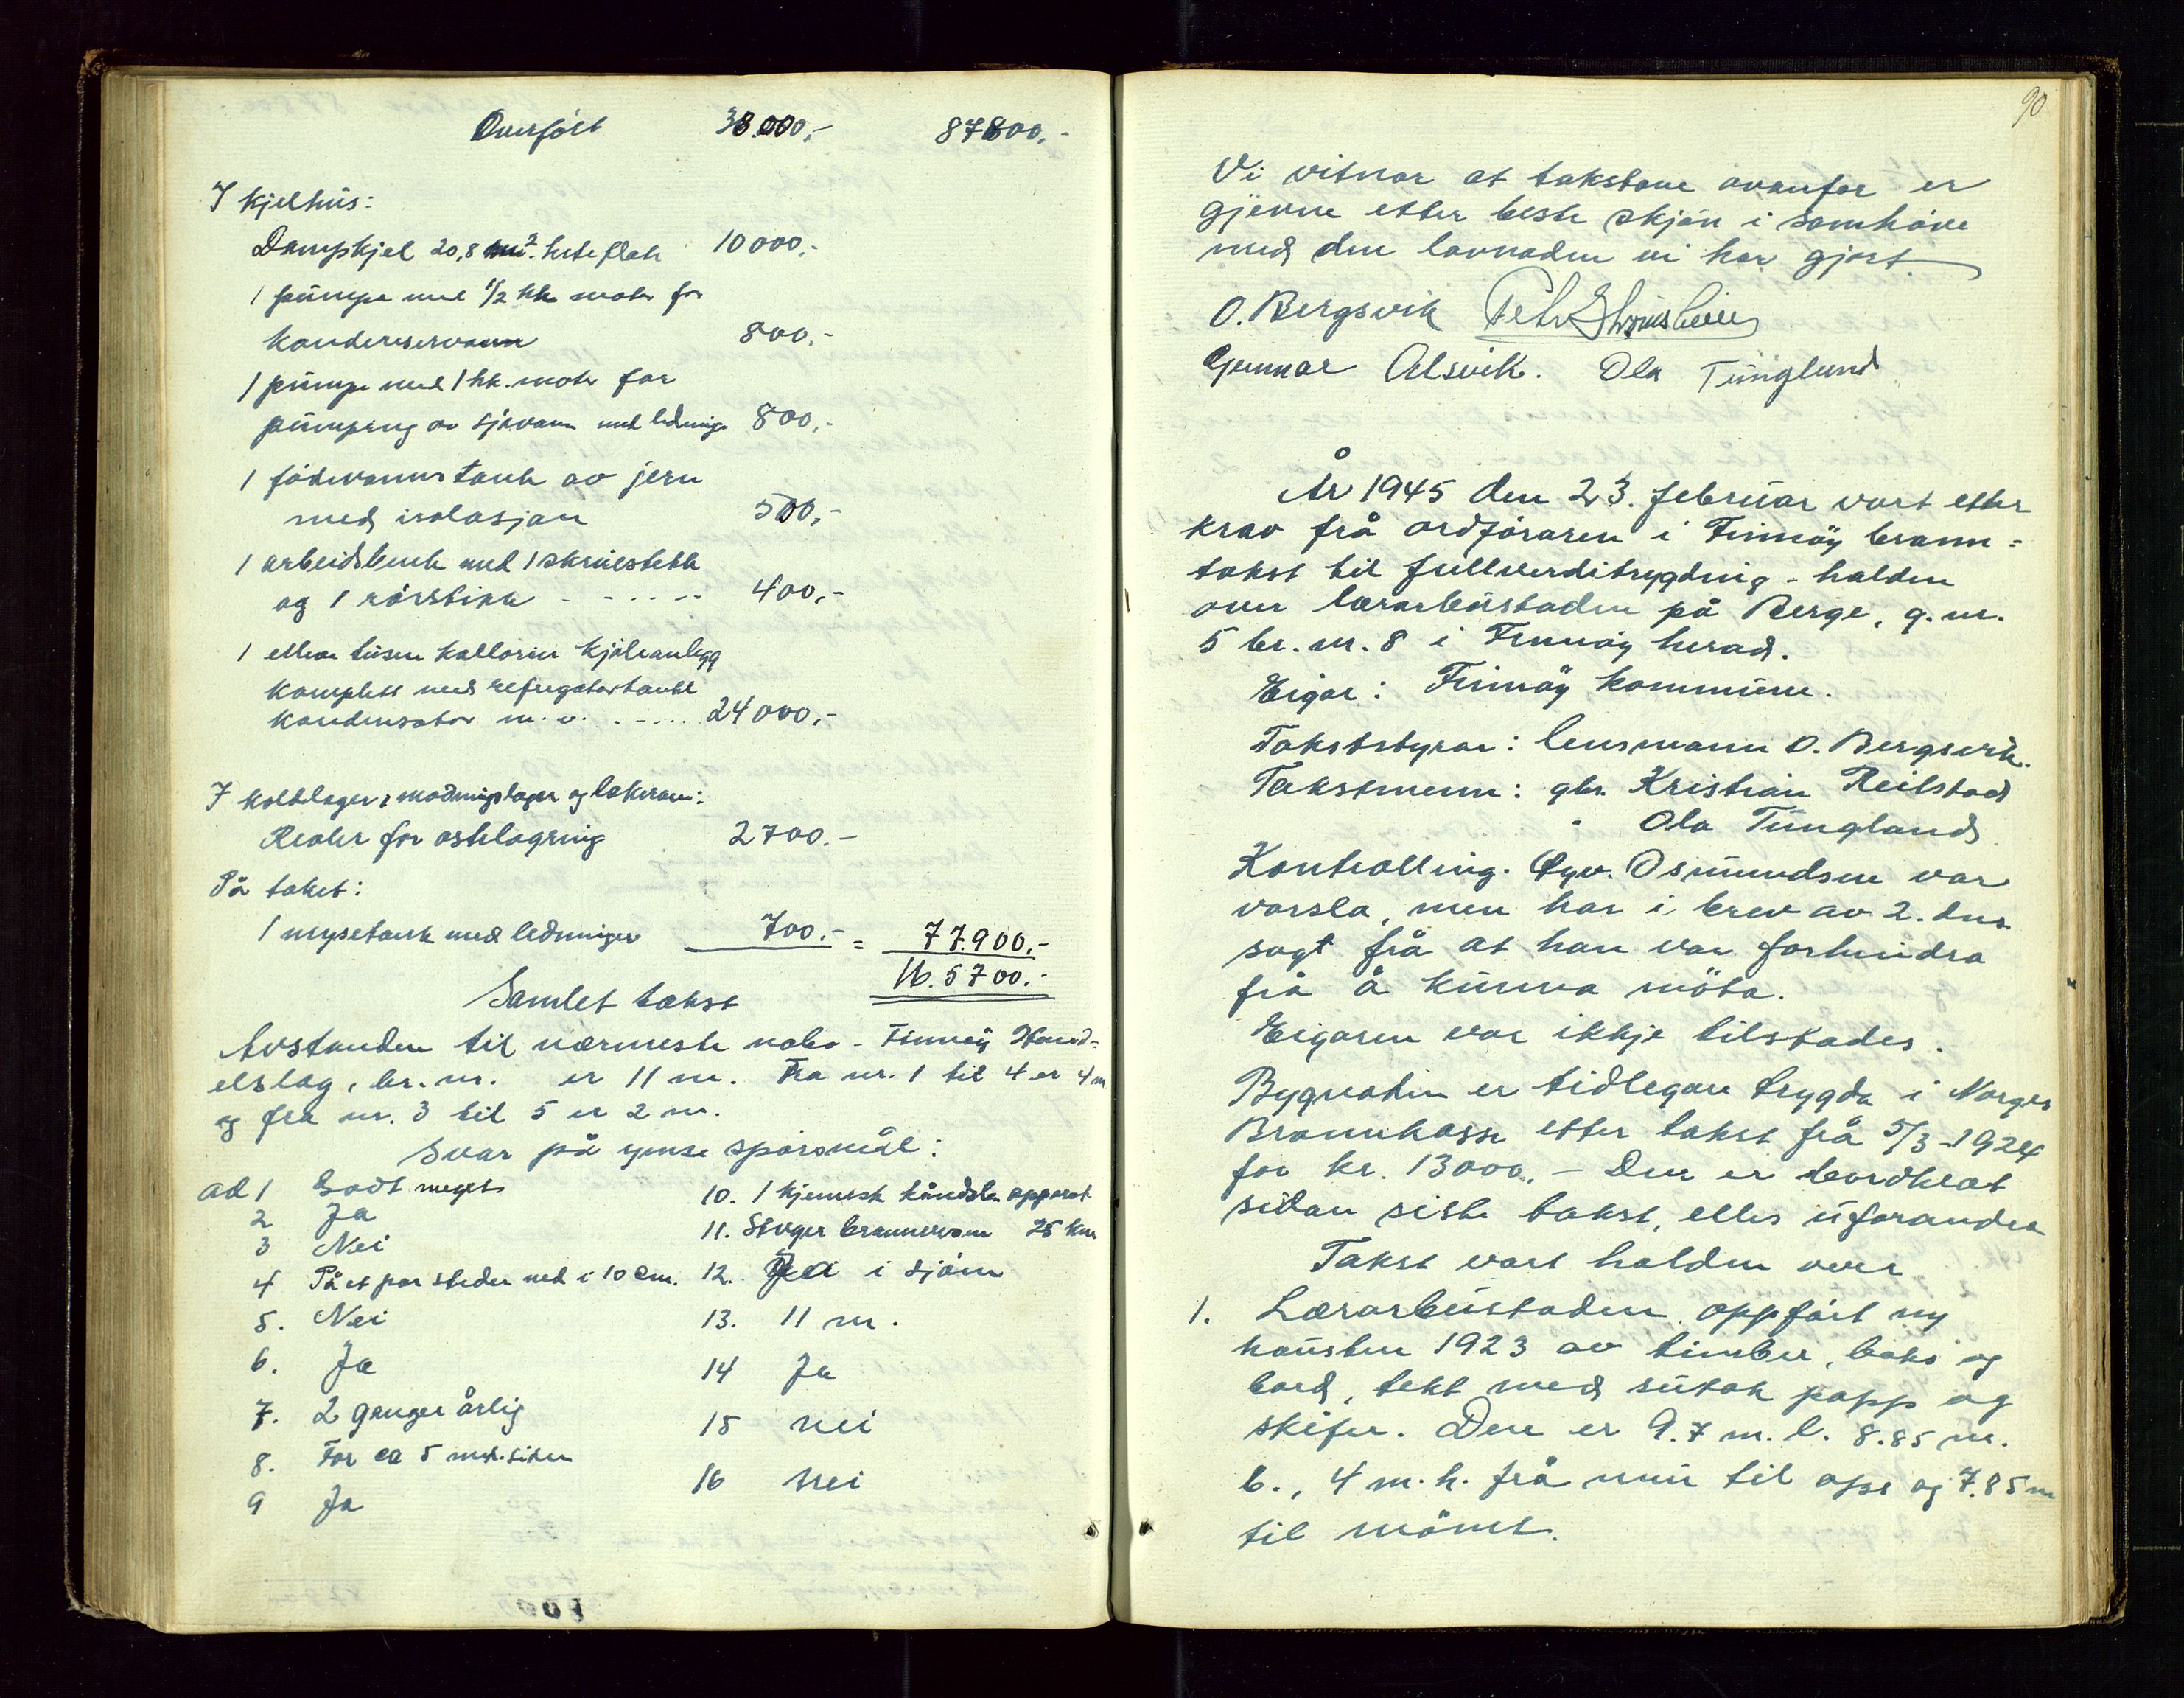 Overført 38.000,- 87800,-
I kjelhus:
Dampkjel 20,8 m². heteflate 10000,-
1 pumpe med 1/2 hk motor for
kondenservann 800,-
1 pumpe med 1 hk. motor for
pumping av sjøvann med ledninger 800,-
1 fødevannstank av jern
med isolasjon 500,-
1 arbeidsbenk med 1 skruestikk
og 1 rørstikk - - . . . -- 400,-
1 elleve tusen kallorier kjøleanlegg
komplett med refrigatortank
kondensator m. v. . -... 24000,-
I kolelager, modningslager og lakerom:
Reoler for ostelagring 2700.-
På taket:
1 mysetank med ledninger 700.- = 77.900,-
Samlet takst 16.5700.-
Avstanden til nærmeste nabo - Finnøy Hand-
elslag, br. nr. er 11 m. Fra nr. 1 til 4 er 4 m
og fra nr. 3 til 5 er 2 m.
Svar på ymse spørsmål:
ad 1 Godt meget
2 Ja
3 Nei
4 På et par steder ned i 10 cm.
5. Nei
6. Ja
7. 2 ganger årlig
8. For ca 5 mnd. siden
9 Ja
10. 1 kjemisk håndsl. apparat
11. Stvgr brannvesen 25 km
12. Ja i sjøen
13. 11 m.
14 Ja
15 nei
16 nei
100
90
Vi vitnar at takstane ovanfor er
gjevne etter beste skjøn i samhøve
med den lovnaden vi har gjort.
O. Bergsvik
Gunnar Alsvik. Ola Tungland
År 1945 den 23. februar vart etter
krav frå ordføraren i Finnøy brann-
takst til fullverditrygding - halden
over lærarbustaden på Berge, g. nr.
5 br. nr. 8 i Finnøy herad.
Eigar: Finnøy kommune.
Takststyrar: lensmann O. Bergsvik.
Takstmenn: gbr. Kristian Reilstad
- Ola Tungland
Kontrolling. Øyv. Osmundsen var
varsla, men har i brev av 2. dns
sagt frå at han var forhindra
frå å kunna møta.
Eigaren var ikkje tilstades.
Bygnaden er tidlegare trygda i Norges
Brannkasse etter takst frå 5/3-1924
for kr. 13000,- Den er bordklædt
sidan siste takst, elles uforandra
Takst vart halden over
1. Lærarbustaden, oppført ny
hausten 1923 av timber, baks og
bord, tekt med sutak papp og
skifer. Den er 9.7 m. l. 8.85 m.
b., 4 m. h. frå mur til ops og 7.85 m
til mønet.